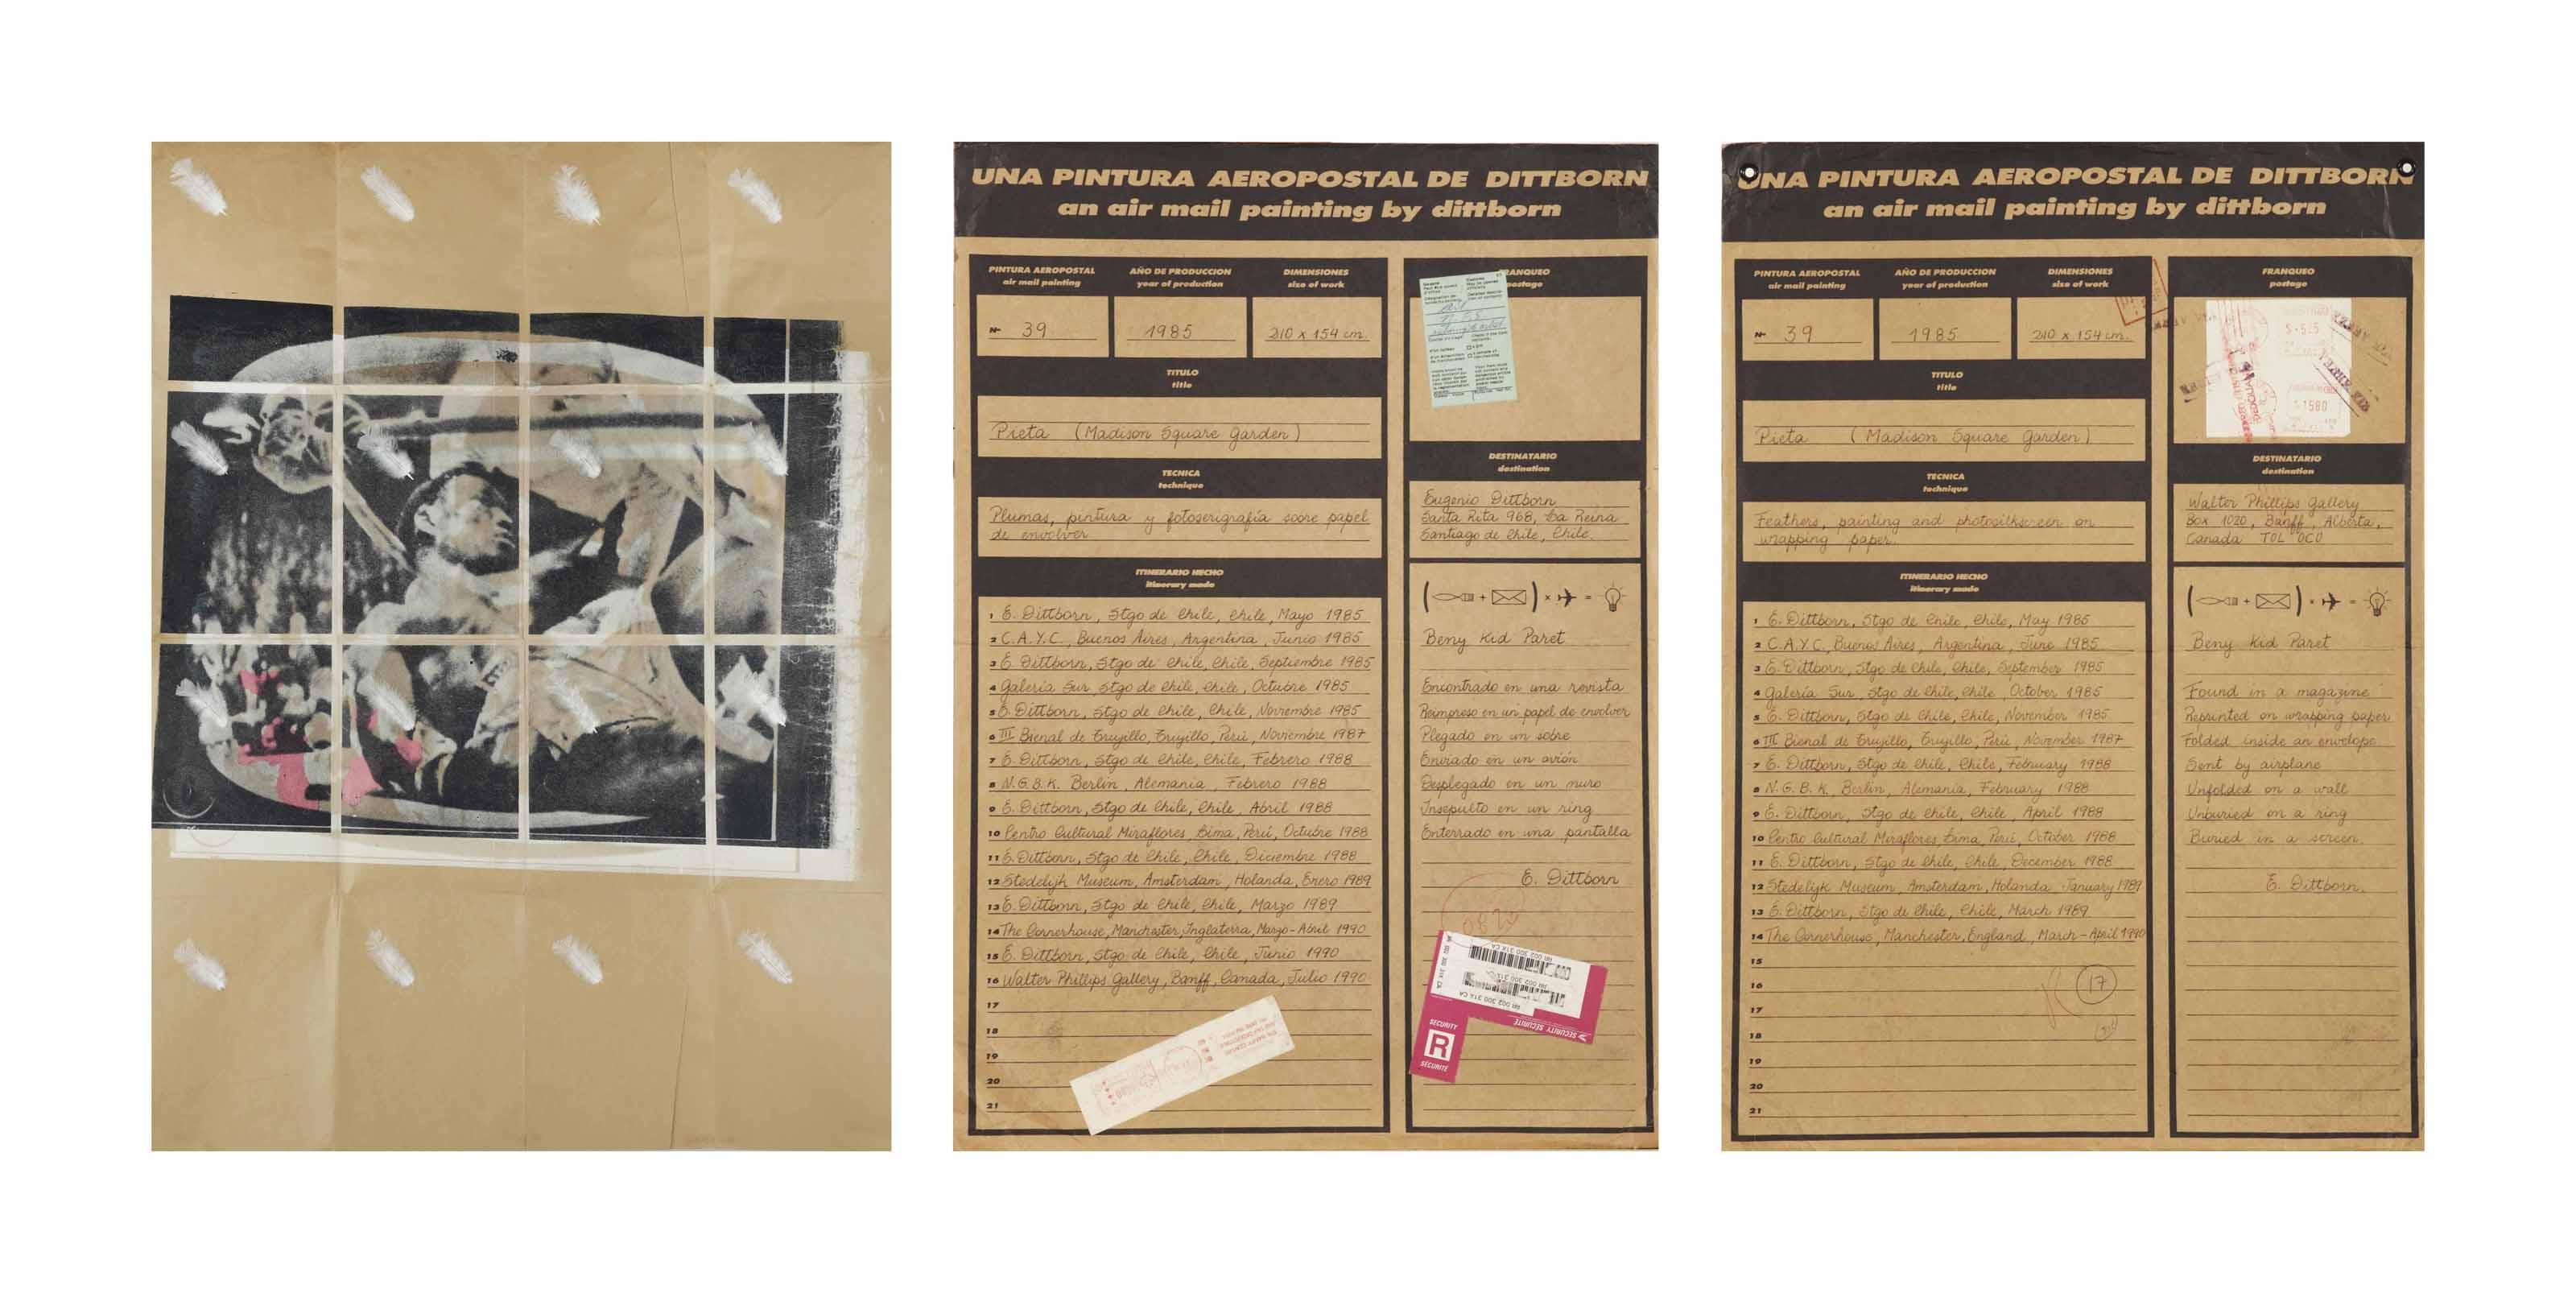 UNA PINTURA AEROPOSTAL DE DITTBORN
an air mail painting by dittborn
PINTURA AEROPOSTAL
air mail painting
Nº 39
AÑO DE PRODUCCION
year of production
1985
DIMENSIONES
size of work
210 x 154 cm.
TITULO
title
Pieta (Madison Square Garden)
TECNICA
technique
Plumas, pintura y fotoserigrafía sobre papel
de envolver
ITINERARIO HECHO
itinerary made
1 E. Dittborn, Stgo de Chile, Chile, Mayo 1985
2 C.A.Y.C., Buenos Aires, Argentina, Junio 1985
3 E. Dittborn, Stgo de Chile, Chile, Septiembre 1985
4 Galería Sur, Stgo de Chile, Chile, Octubre 1985
5 E. Dittborn, Stgo de Chile, Chile, Noviembre 1985
6 III Bienal de Trujillo, Trujillo, Perú, Noviembre 1987
7 E. Dittborn, Stgo de Chile, Chile, Febrero 1988
8 N.G.B.K. Berlin, Alemania, Febrero 1988
9 E. Dittborn, Stgo de Chile, Chile, Abril 1988
10 Centro Cultural Miraflores, Lima, Perú, Octubre 1988
11 E. Dittborn, Stgo de Chile, Chile, Diciembre 1988
12 Stedelijk Museum, Amsterdam, Holanda, Enero 1989
13 E. Dittborn, Stgo de Chile, Chile, Marzo 1989
14 The Cornerhouse, Manchester, Inglaterra, Marzo-Abril 1990
15 E. Dittborn, Stgo de Chile, Chile, Junio 1990
16 Walter Phillips Gallery, Banff, Canada, Julio 1990
17
18
19
20
21
FRANQUEO
postage
DESTINATARIO
destination
Eugenio Dittborn
Santa Rita 968, La Reina
Santiago de Chile, Chile.
( + ) x =
Beny Kid Paret
Encontrado en una revista
Reimpreso en un papel de envolver
Plegado en un sobre
Enviado en un avión
Desplegado en un muro
Insepulto en un ring
Enterrado en una pantalla
E. Dittborn
RR 002 300 315 CA
SECURITY SÉCURITÉ
SECURITY
R
SÉCURITÉ
UNA PINTURA AEROPOSTAL DE DITTBORN
an air mail painting by dittborn
PINTURA AEROPOSTAL
air mail painting
Nº 39
AÑO DE PRODUCCION
year of production
1985
DIMENSIONES
size of work
210 x 154 cm.
TITULO
title
Pieta (Madison Square Garden)
TECNICA
technique
Feathers, painting and photosilkscreen on
wrapping paper.
ITINERARIO HECHO
itinerary made
1 E. Dittborn, Stgo de Chile, Chile, May 1985
2 C.A.Y.C., Buenos Aires, Argentina, June 1985
3 E. Dittborn, Stgo de Chile, Chile, September 1985
4 Galería Sur, Stgo de Chile, Chile, October 1985
5 E. Dittborn, Stgo de Chile, Chile, November 1985
6 III Bienal de Trujillo, Trujillo, Perú, November 1987
7 E. Dittborn, Stgo de Chile, Chile, February 1988
8 N.G.B.K., Berlin, Alemania, February 1988
9 E. Dittborn, Stgo de Chile, Chile, April 1988
10 Centro Cultural Miraflores, Lima, Perú, October 1988
11 E. Dittborn, Stgo de Chile, Chile, December 1988
12 Stedelijk Museum, Amsterdam, Holanda, January 1989
13 E. Dittborn, Stgo de Chile, Chile, March 1989
14 The Cornerhouse, Manchester, England, March-April 1990
15
16
17
17
18
19
20
21
FRANQUEO
postage
1580
DESTINATARIO
destination
Walter Phillips Gallery
Box 1020, Banff, Alberta,
Canada T0L 0C0
( + ) x =
Beny Kid Paret
Found in a magazine
Reprinted on wrapping paper
Folded inside an envelope
Sent by airplane
Unfolded on a wall
Unburied on a ring
Buried in a screen.
E. Dittborn.